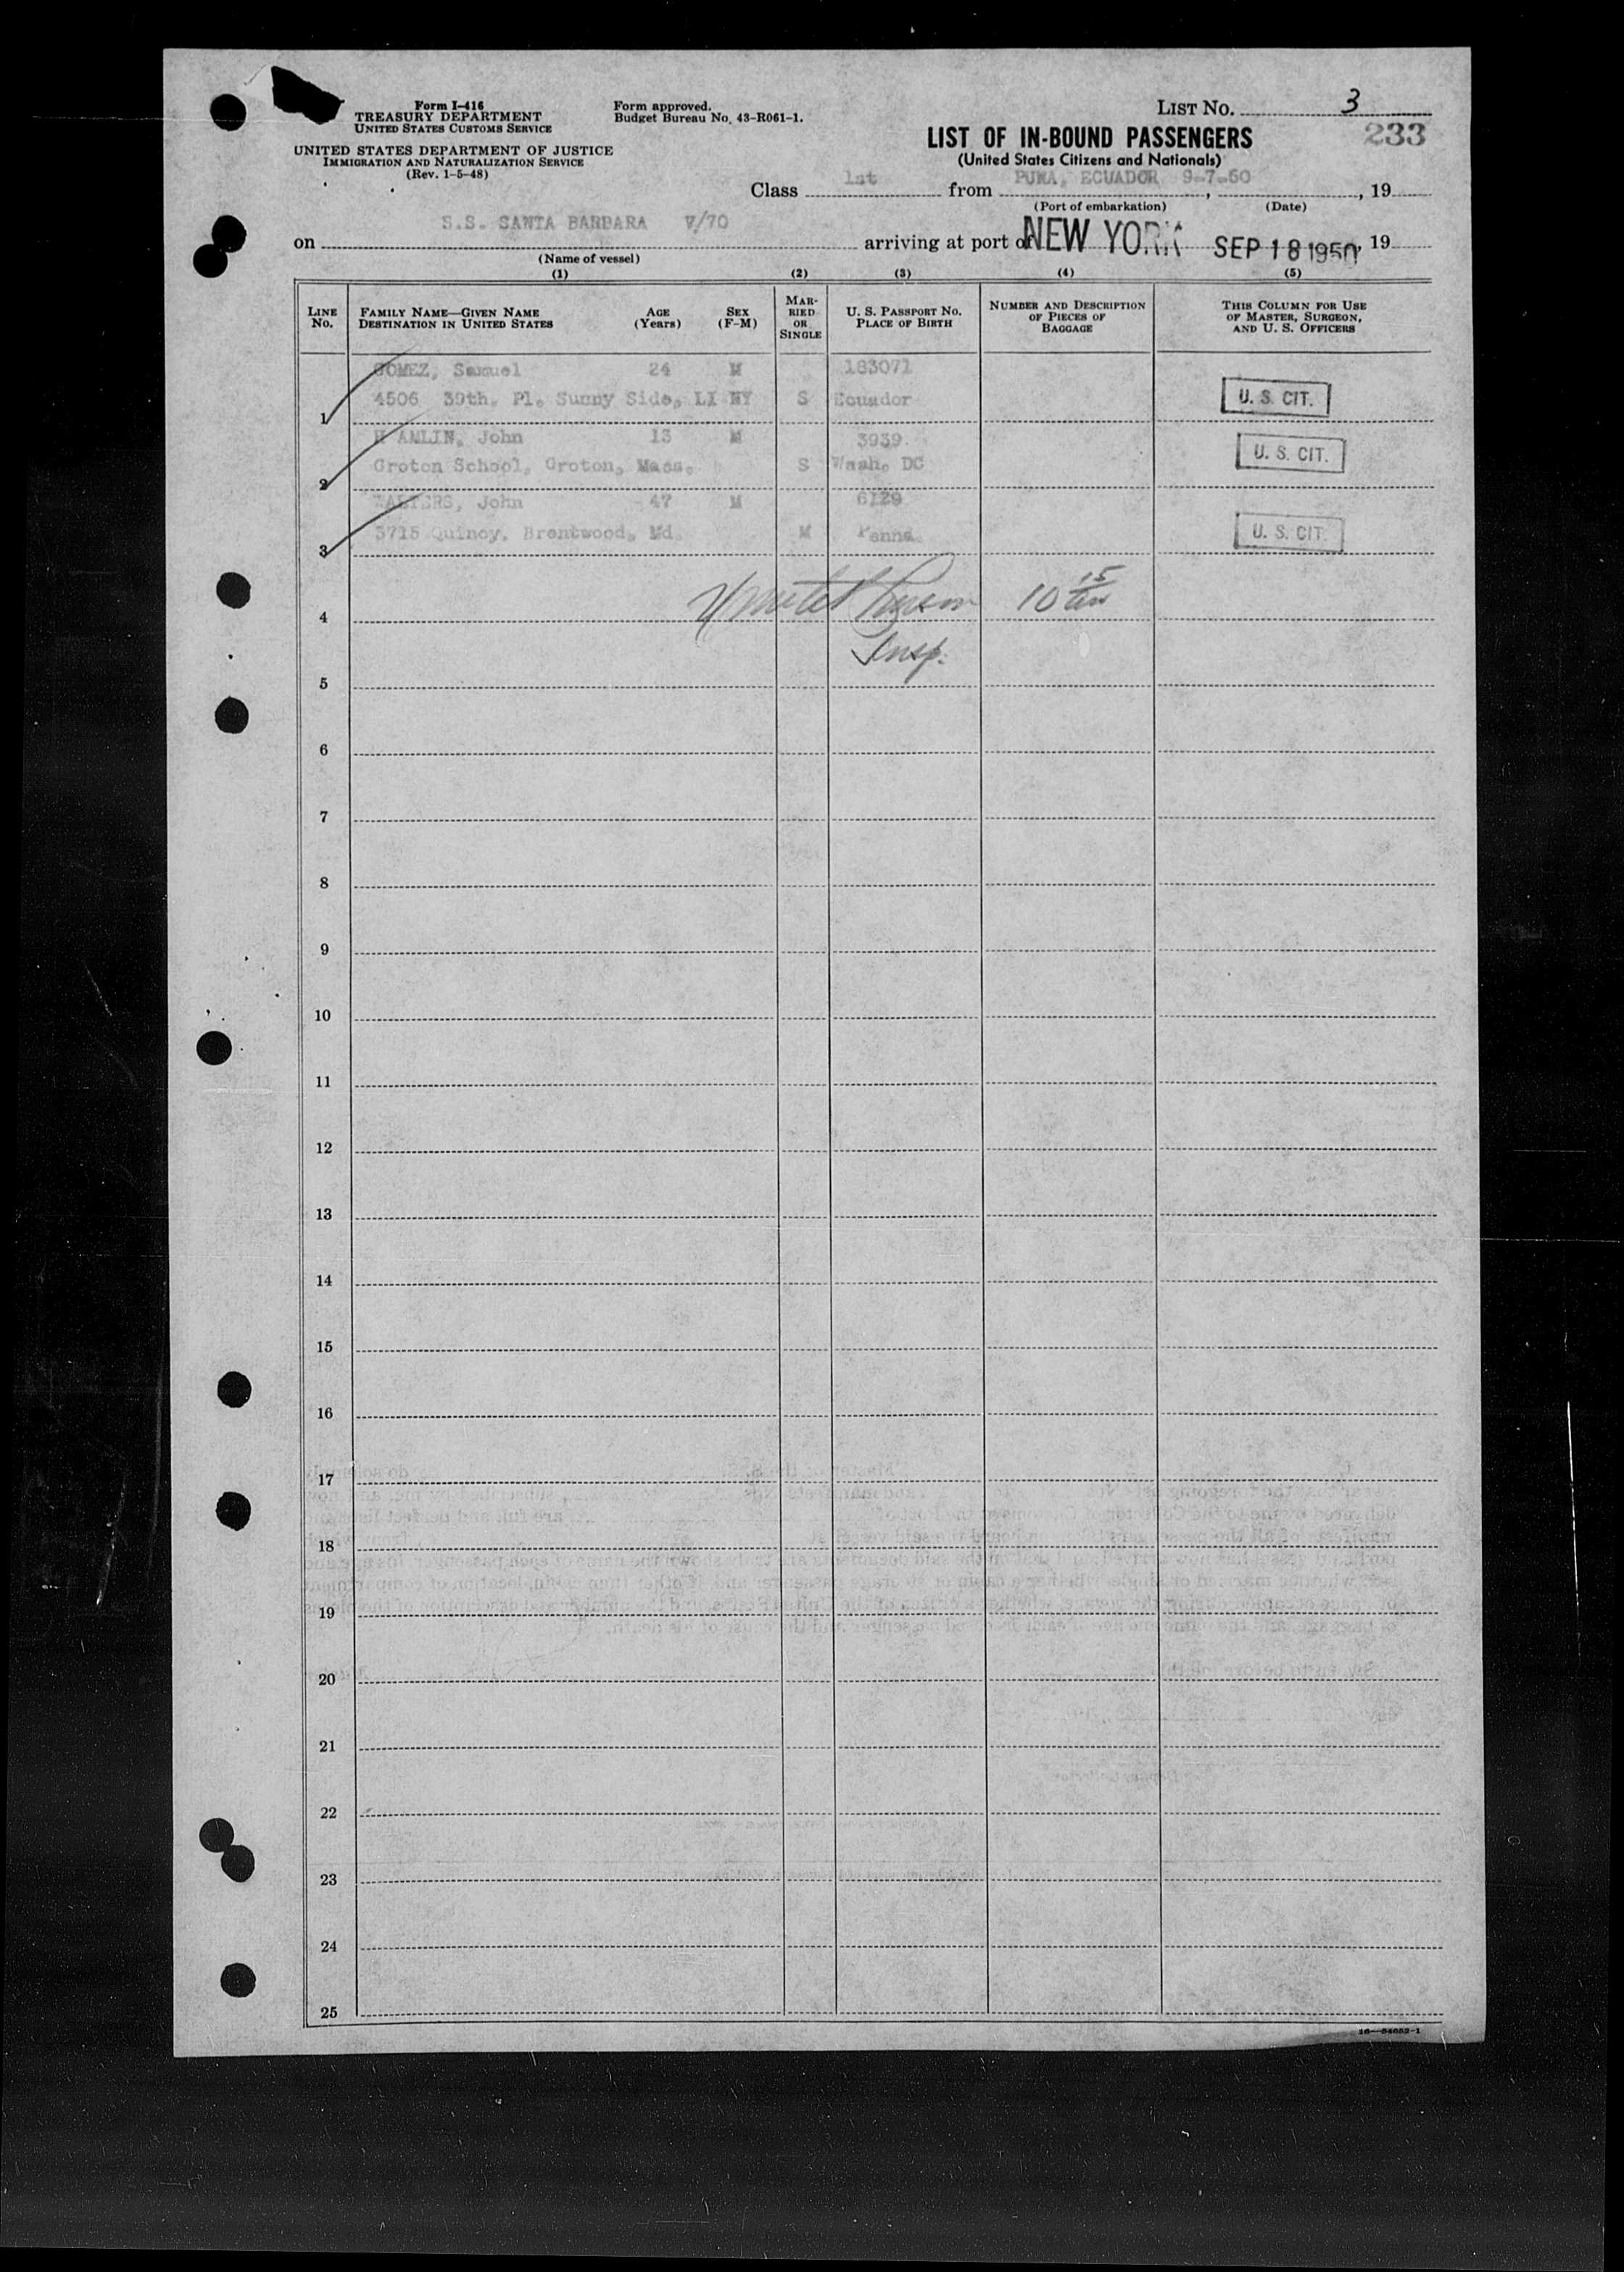 Form I-416
TREASURY DEPARTMENT
UNITED STATES CUSTOMS SERVICE
UNITED STATES DEPARTMENT OF JUSTICE
IMMIGRATION AND NATURALIZATION SERVICE
(Rev. 1-5-48)
Form approved.
Budget Bureau No. 43-R061-1.
LIST NO. 3
233
LIST OF IN-BOUND PASSENGERS
(United States Citizens and Nationals)
Class 1st from PUNA, ECUADOR 9-7-50, 19
(Port of embarkation) (Date)
on S.S. SANTA BARBARA V/70 arriving at port of NEW YORK SEP 18 1950, 19
(Name of vessel)
(1) (2) (3) (4) (5)
LINE NO.
FAMILY NAME—GIVEN NAME
DESTINATION IN UNITED STATES
AGE (Years)
SEX (F-M)
MARRIED OR SINGLE
U. S. PASSPORT NO.
PLACE OF BIRTH
NUMBER AND DESCRIPTION OF PIECES OF BAGGAGE
THIS COLUMN FOR USE OF MASTER, SURGEON, AND U. S. OFFICERS
GOMEZ, Samuel 24 M 183071
1 4506 39th. Pl. Sunny Side, LI NY S Ecuador U. S. CIT.
HAMLIN, John 13 M 3939
2 Groton School, Groton, Mass. S Wash. DC U. S. CIT.
WALTERS, John 47 M 6129
3 3715 Quincy, Brentwood, Md. M Penna. U. S. CIT.
4 10 15
Insp.
5
6
7
8
9
10
11
12
13
14
15
16
17
18
19
20
21
22
23
24
25
16—54652-1